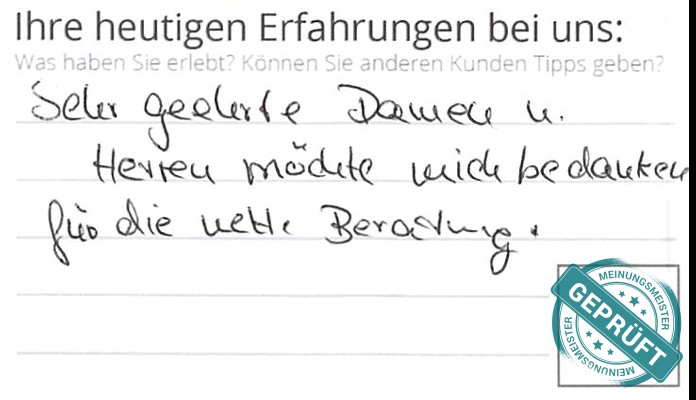 Ihre heutigen Erfahrungen bei uns:
Was haben Sie erlebt? Können Sie anderen Kunden Tipps geben?
Sehr geehrte Damen u.
Herren möchte mich bedanken
für die nette Beratung.
MEINUNGSMEISTER
GEPRÜFT
MEINUNGSMEISTER
MEINUNGSMEISTER